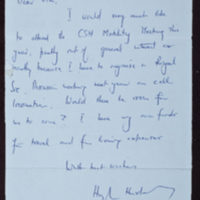 Dear Jim,
I would very much like
to attend the CSH Motility Meeting this
year, partly out of general interest and
mostly because I have to organise a Royal
Soc. Discussion meeting next year on cell
locomotion. Would there be room for
me to come? I have my own funds
for travel and for living expenses
With best wishes
Hugh Huxley